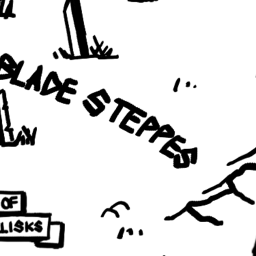 BLADE STEPPES
OF
LISKS